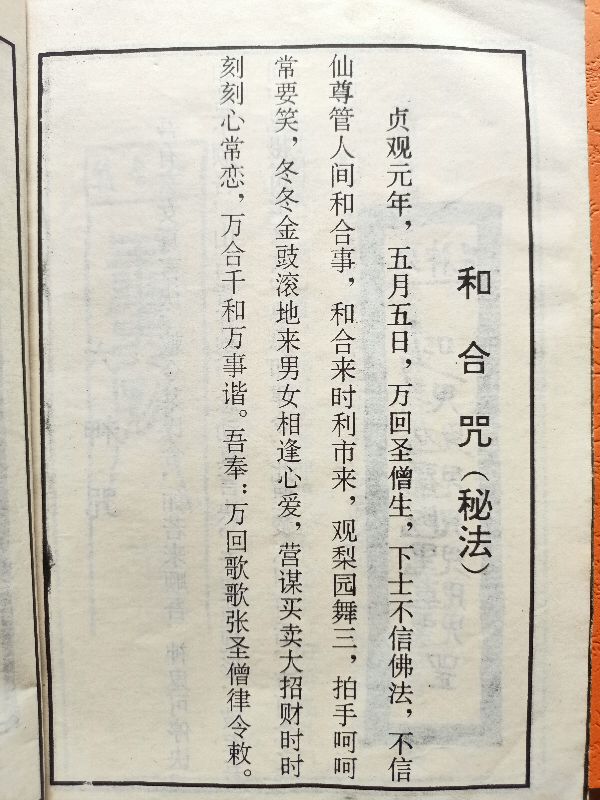 和合咒（秘法）
贞观元年，五月五日，万回圣僧生，下士不信佛法，不信
仙尊管人间和合事，和合来时利市来，观梨园舞三，拍手呵呵
常要笑，冬冬金豉滚地来男女相逢心爱，营谋买卖大招财时时
刻刻心常恋，万合千和万事谐。吾奉：万回歌歌张圣僧律令敕。